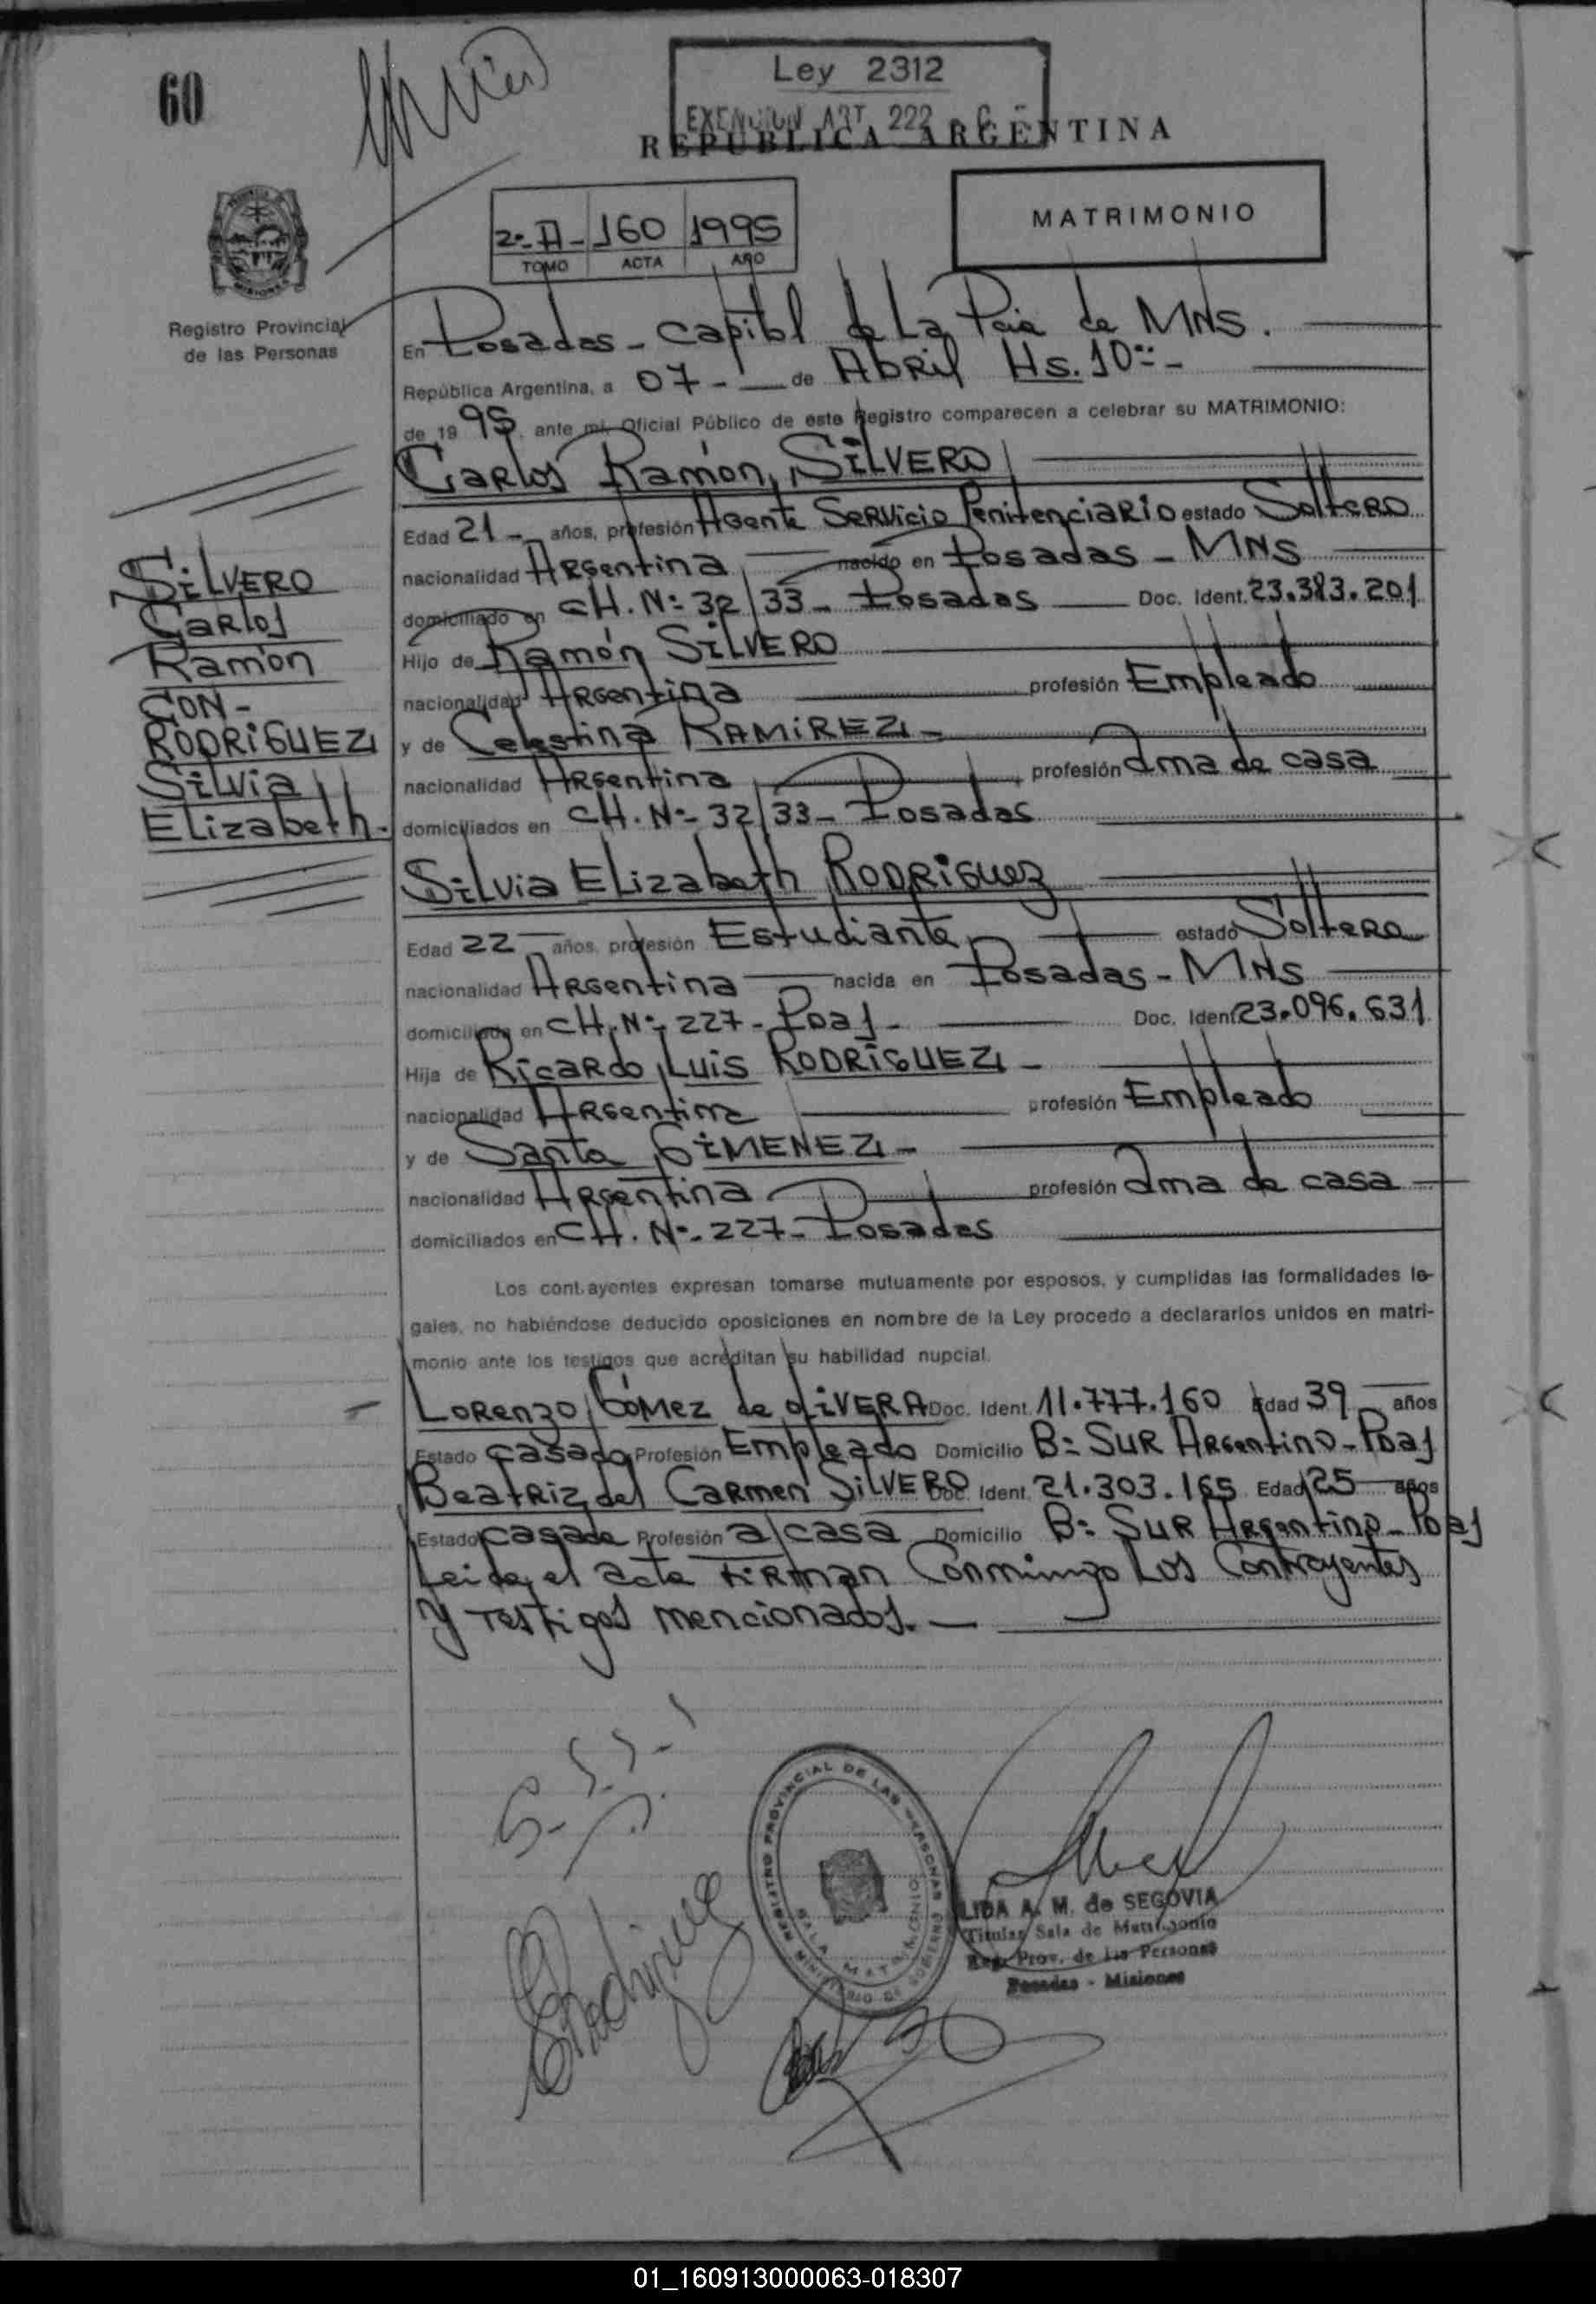 60
Ley 2312
EXENCION ART. 222
REPUBLICA ARGENTINA
2º-A- 160 1995
TOMO ACTA AÑO
MATRIMONIO
Registro Provincial
de las Personas
En Posadas - Capital de La Pcia de MNS.
República Argentina, a 07 - de Abril Hs. 10
de 1995, ante mi, Oficial Público de este Registro comparecen a celebrar su MATRIMONIO:
Carlos Ramón, SILVERO
Edad 21 - años, profesión Agente Servicio Penitenciario estado Soltero
nacionalidad Argentina nacido en Posadas - MNS
domiciliado en CH. Nº 32/33 - Posadas Doc. Ident. 23.383.201
Hijo de Ramón SILVERO
nacionalidad Argentina profesión Empleado
y de Celestina RAMIREZ -
nacionalidad Argentina profesión Ama de casa
domiciliados en CH. Nº - 32/33 - Posadas
SILVERO
Carlos
Ramón
CON -
RODRIGUEZ
Silvia
Elizabeth -
Silvia Elizabeth RODRIGUEZ
Edad 22 años, profesión Estudiante estado Soltera
nacionalidad Argentina nacida en Posadas - MNS
domiciliada en CH. Nº - 227 - Pdas - Doc. Ident. 23.096.631
Hija de Ricardo Luis RODRIGUEZ -
nacionalidad Argentina profesión Empleado
y de Santa GIMENEZ -
nacionalidad Argentina profesión Ama de casa
domiciliados en CH. Nº - 227 - Posadas
Los contrayentes expresan tomarse mutuamente por esposos, y cumplidas las formalidades le-
gales, no habiéndose deducido oposiciones en nombre de la Ley procedo a declararlos unidos en matri-
monio ante los testigos que acreditan su habilidad nupcial.
Lorenzo Gómez de OLIVERA Doc. Ident. 11.777.160 Edad 39 años
Estado Casado Profesión Empleado Domicilio Bº SUR Argentino - Pdas
Beatriz del Carmen SILVERO Doc. Ident. 21.303.165 Edad 25 años
Estado Casada Profesión a/casa Domicilio Bº SUR Argentino - Pdas
Leida el acta Firman Conmingo Los Contrayentes
Y Testigos mencionados. -
REGISTRO PROVINCIAL DE LAS PERSONAS
SALA MATRIMONIO
MINISTERIO DE GOBIERNO
LIDA A. M. de SEGOVIA
Titular Sala de Matrimonio
Reg. Prov. de las Personas
Posadas - Misiones
01_160913000063-018307